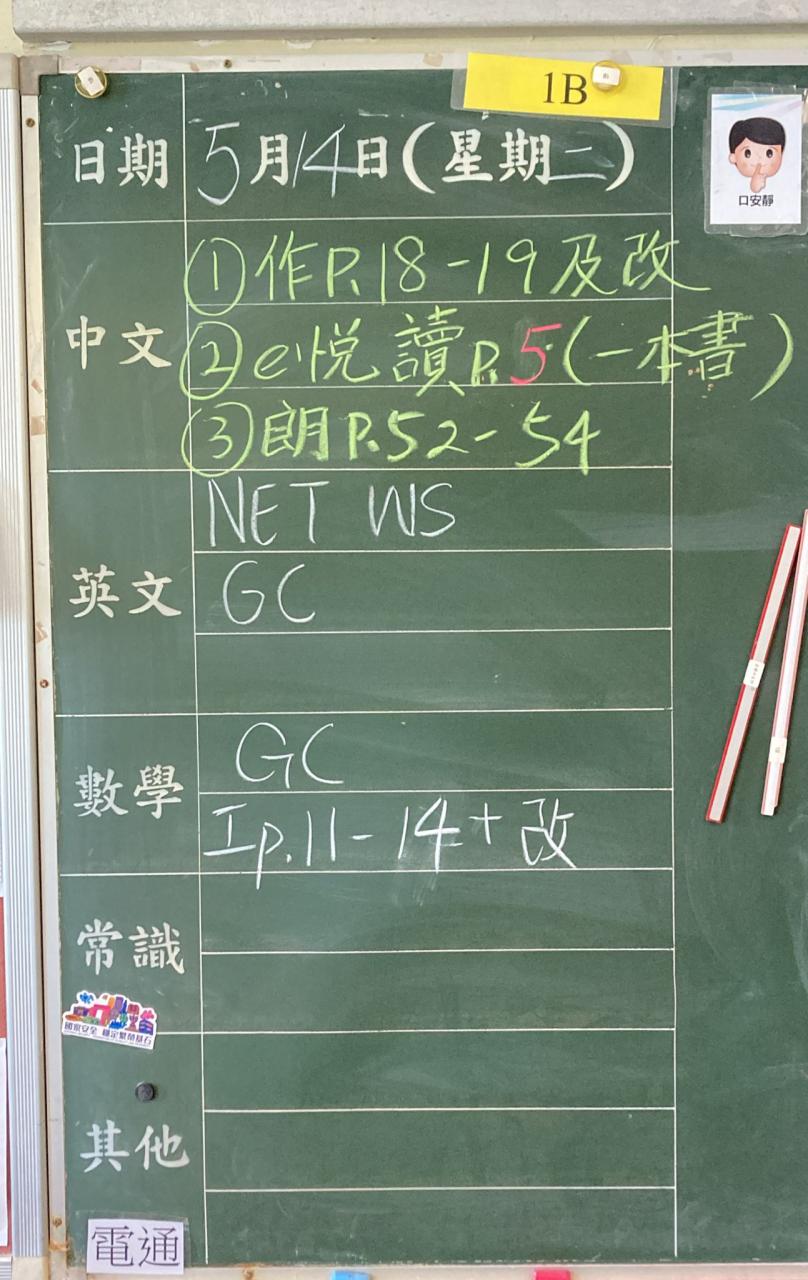 1B
日期 5月14日(星期二)
口安靜
中文
①作P.18-19及改
②e悅讀P.5(一本書)
③朗P.52-54
英文
NET WS
GC
數學
GC
工p.11-14+改
常識
國家安全 穩定繁榮基石
其他
電通